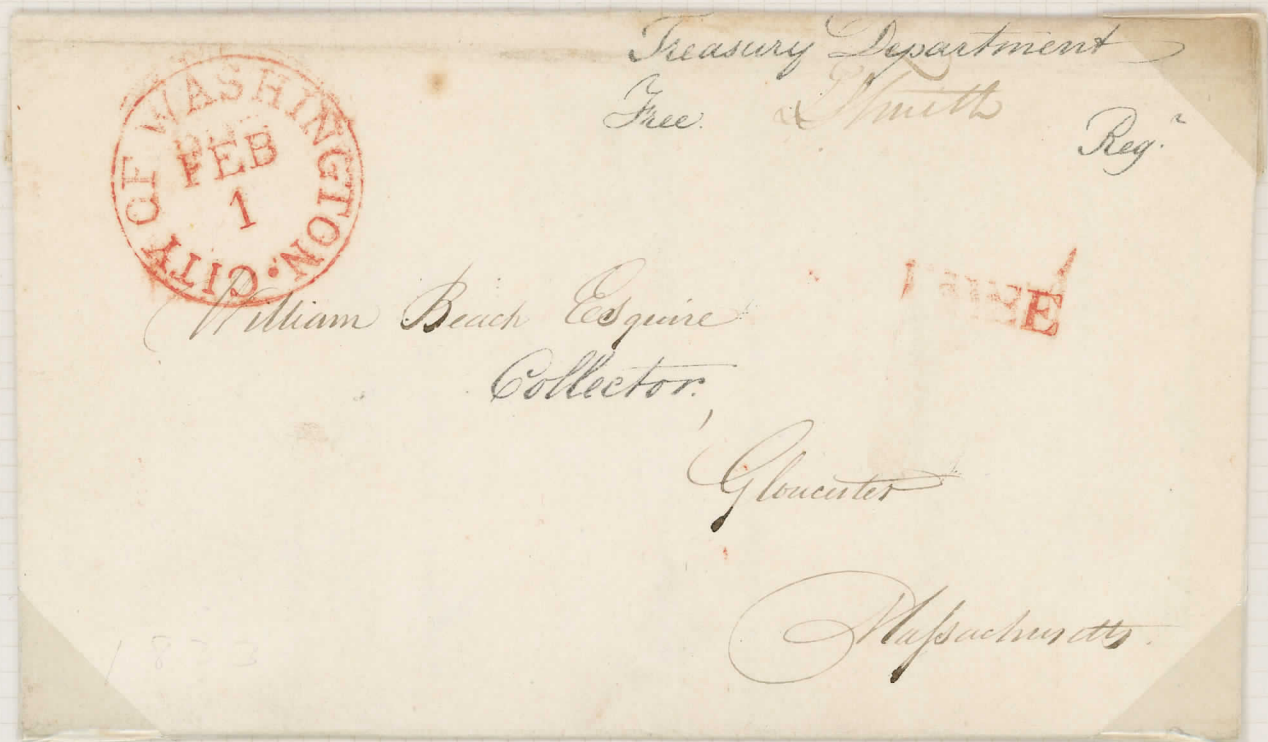 Treasury Department
Free. T Smith
Reg.r
CITY OF WASHINGTON
FEB
1
FREE
William Beach Esquire
Collector.
Gloucester
Massachusetts.
1833